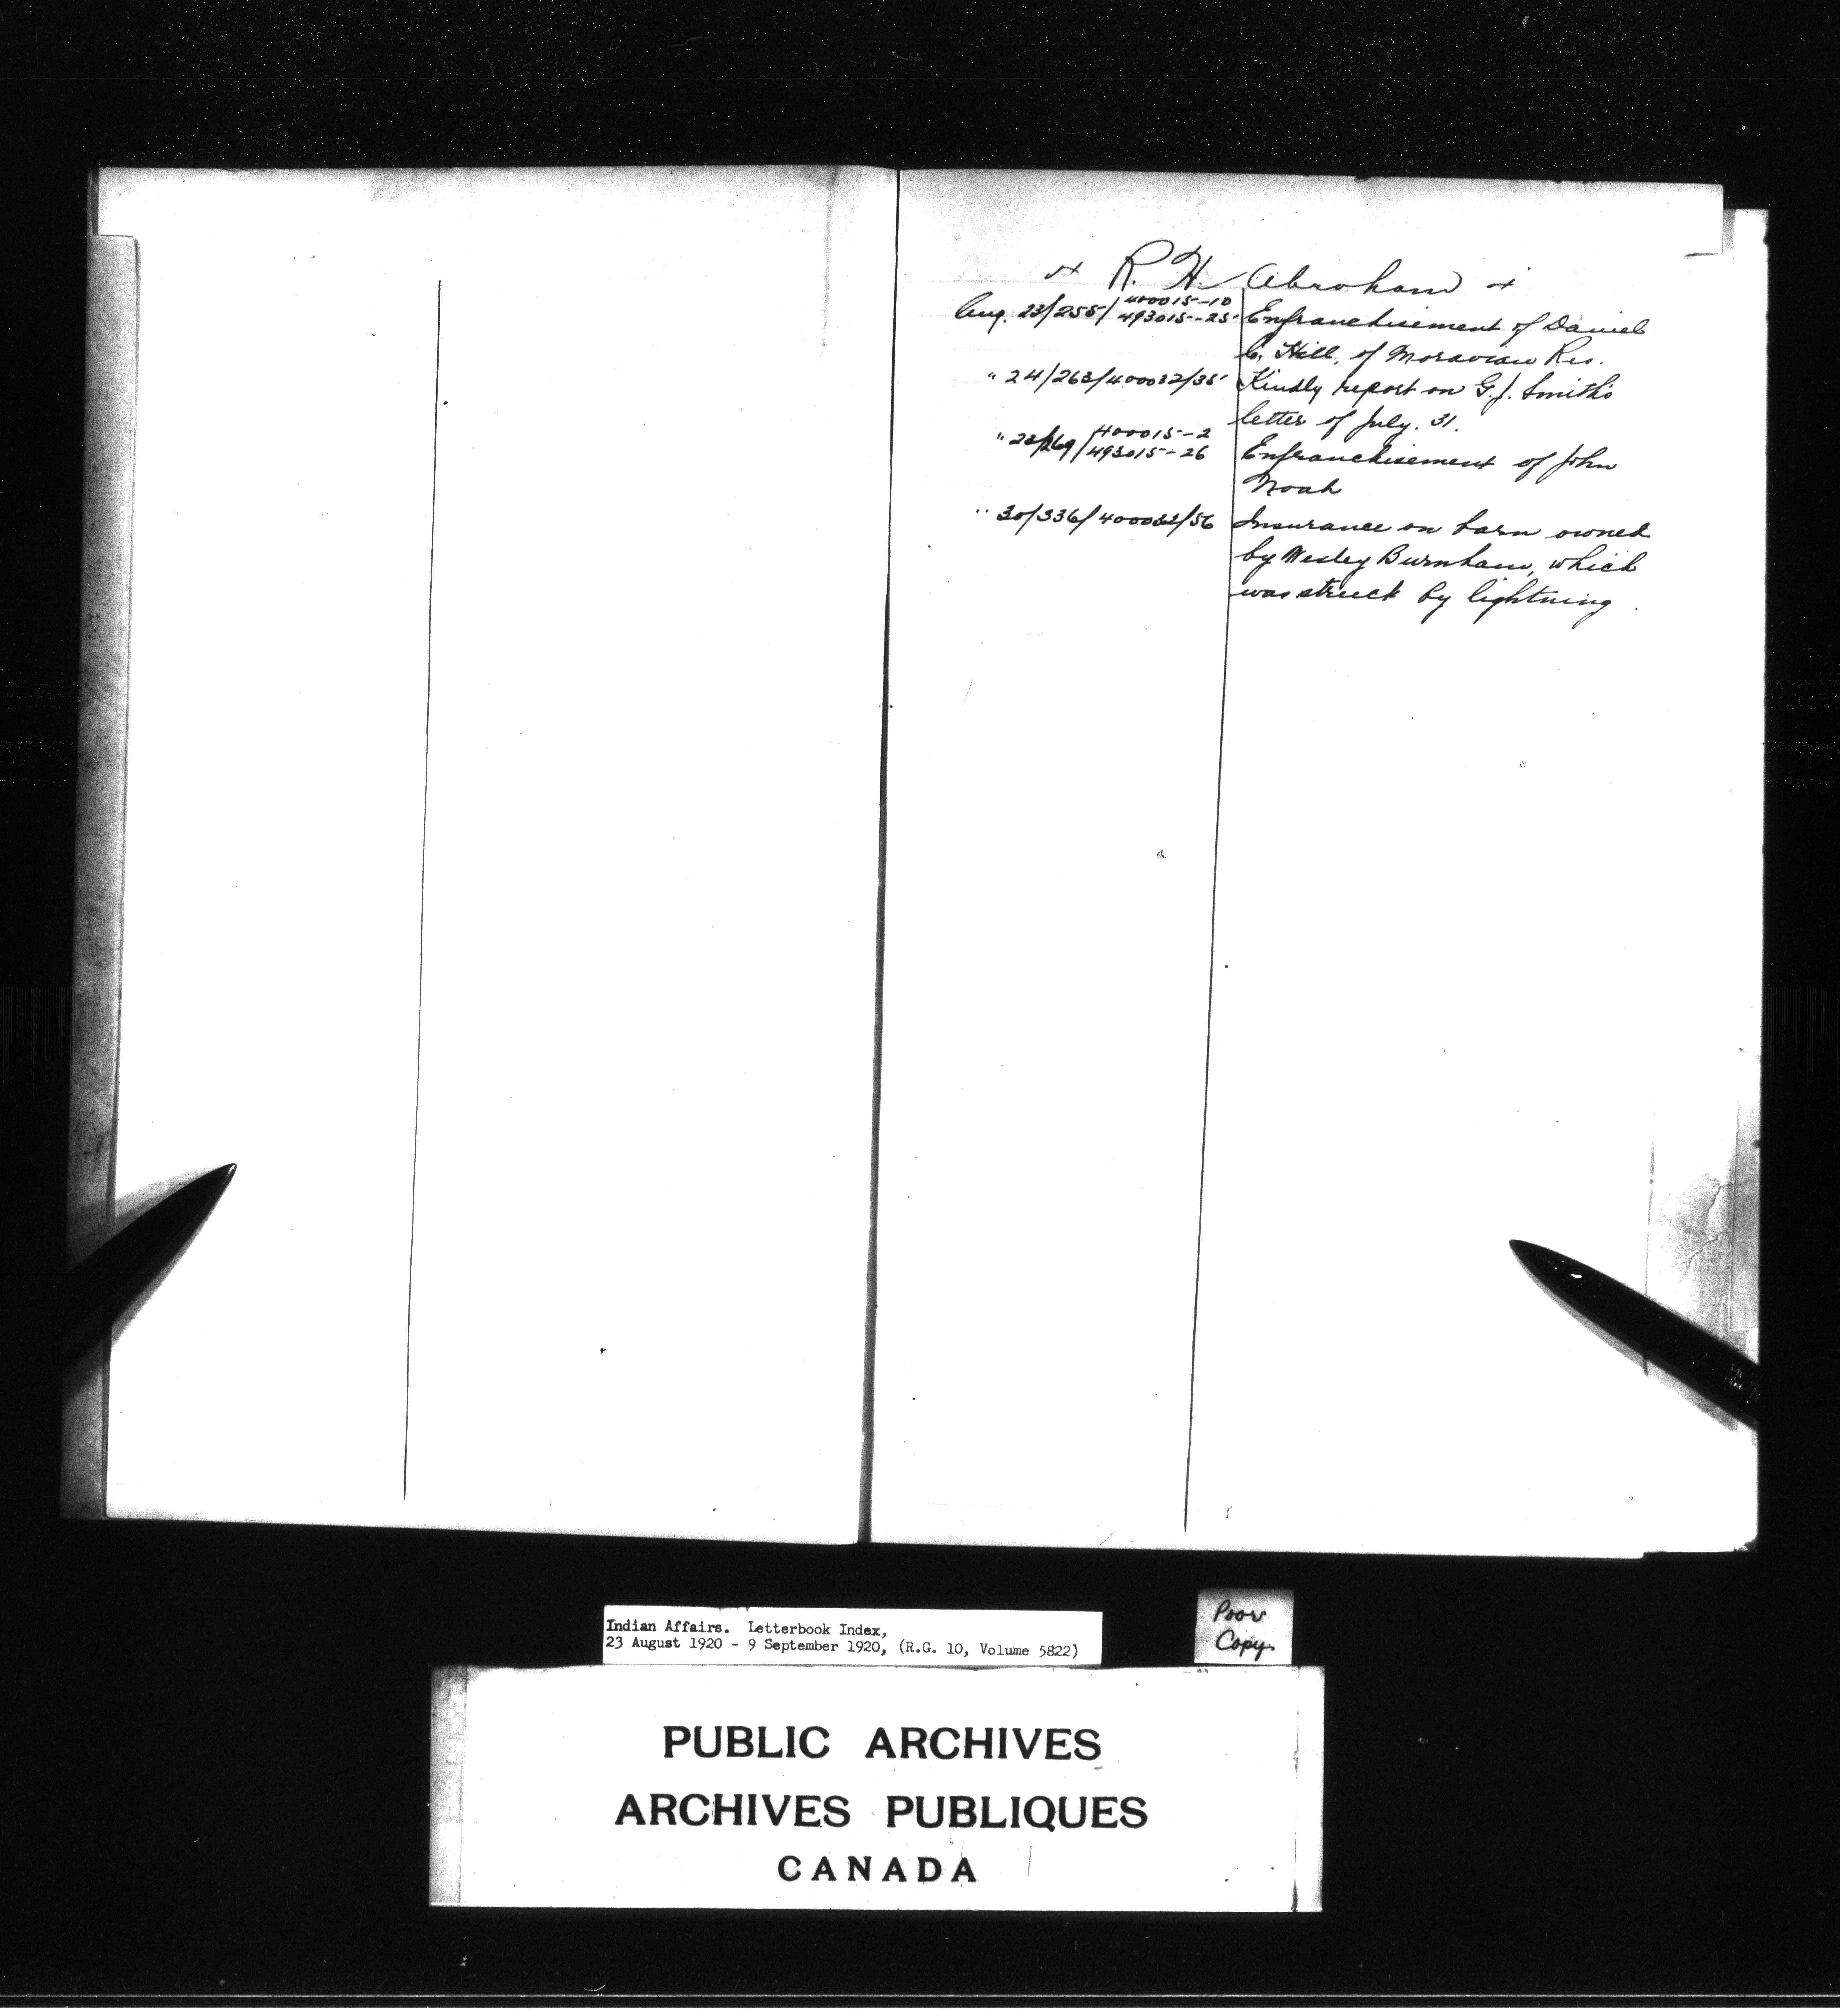 R. H. Abraham
Aug. 23/255/ 400015-10
493015-25 Enfranchisement of Daniel
C. Hill, of Moravian Res.
" 24/263/400032/35 Kindly report on G. J. Smith's
letter of July. 31.
" 23/269/ 400015-2
493015-26 Enfranchisement of John
Noah
" 30/336/400032/56 Insurance on barn owned
by Wesley Burnham, which
was struck by lightning.
Indian Affairs. Letterbook Index,
23 August 1920 - 9 September 1920, (R.G. 10, Volume 5822)
Poor
Copy.
PUBLIC ARCHIVES
ARCHIVES PUBLIQUES
CANADA